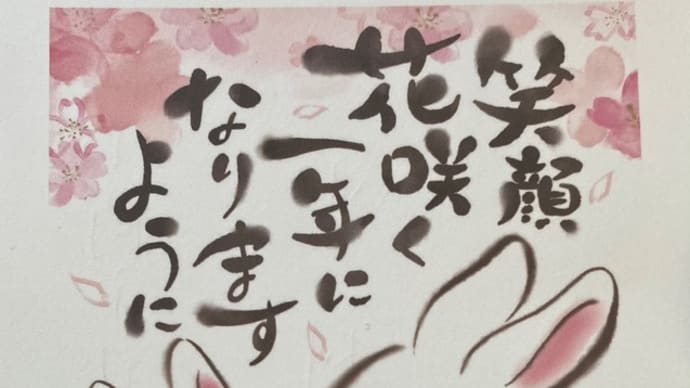 笑顔
花咲く
一年に
なります
ように